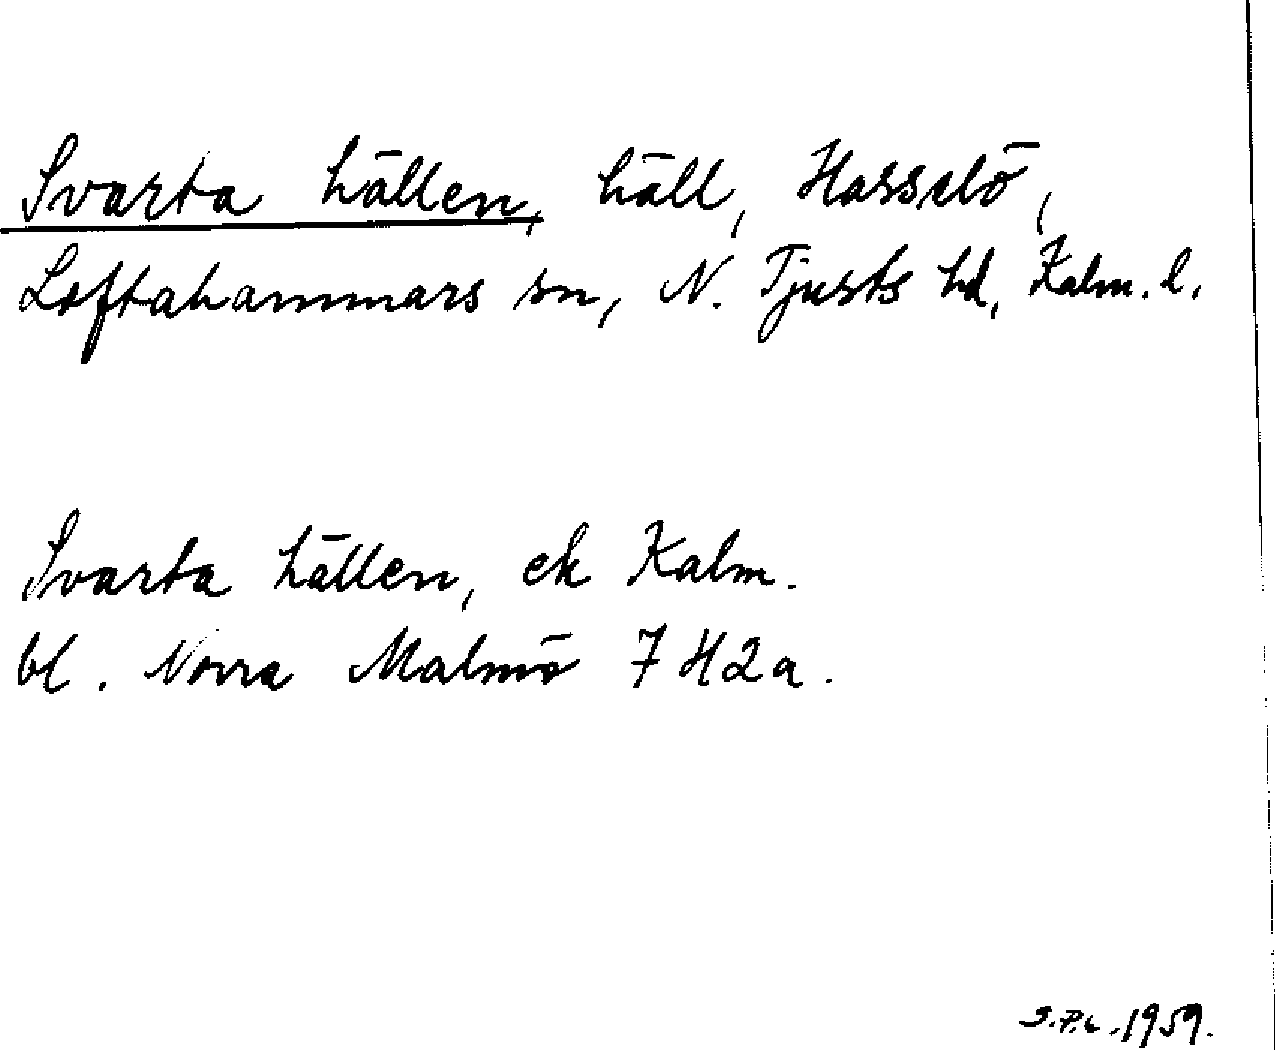 Svarta hällen, häll, Hasselö,
Loftahammars sn, N. Tjusts hd, Kalm. l.
Svarta hällen, ek Kalm.
bl. Norra Malmö 7 H 2 a.
S.P.L. 1959.